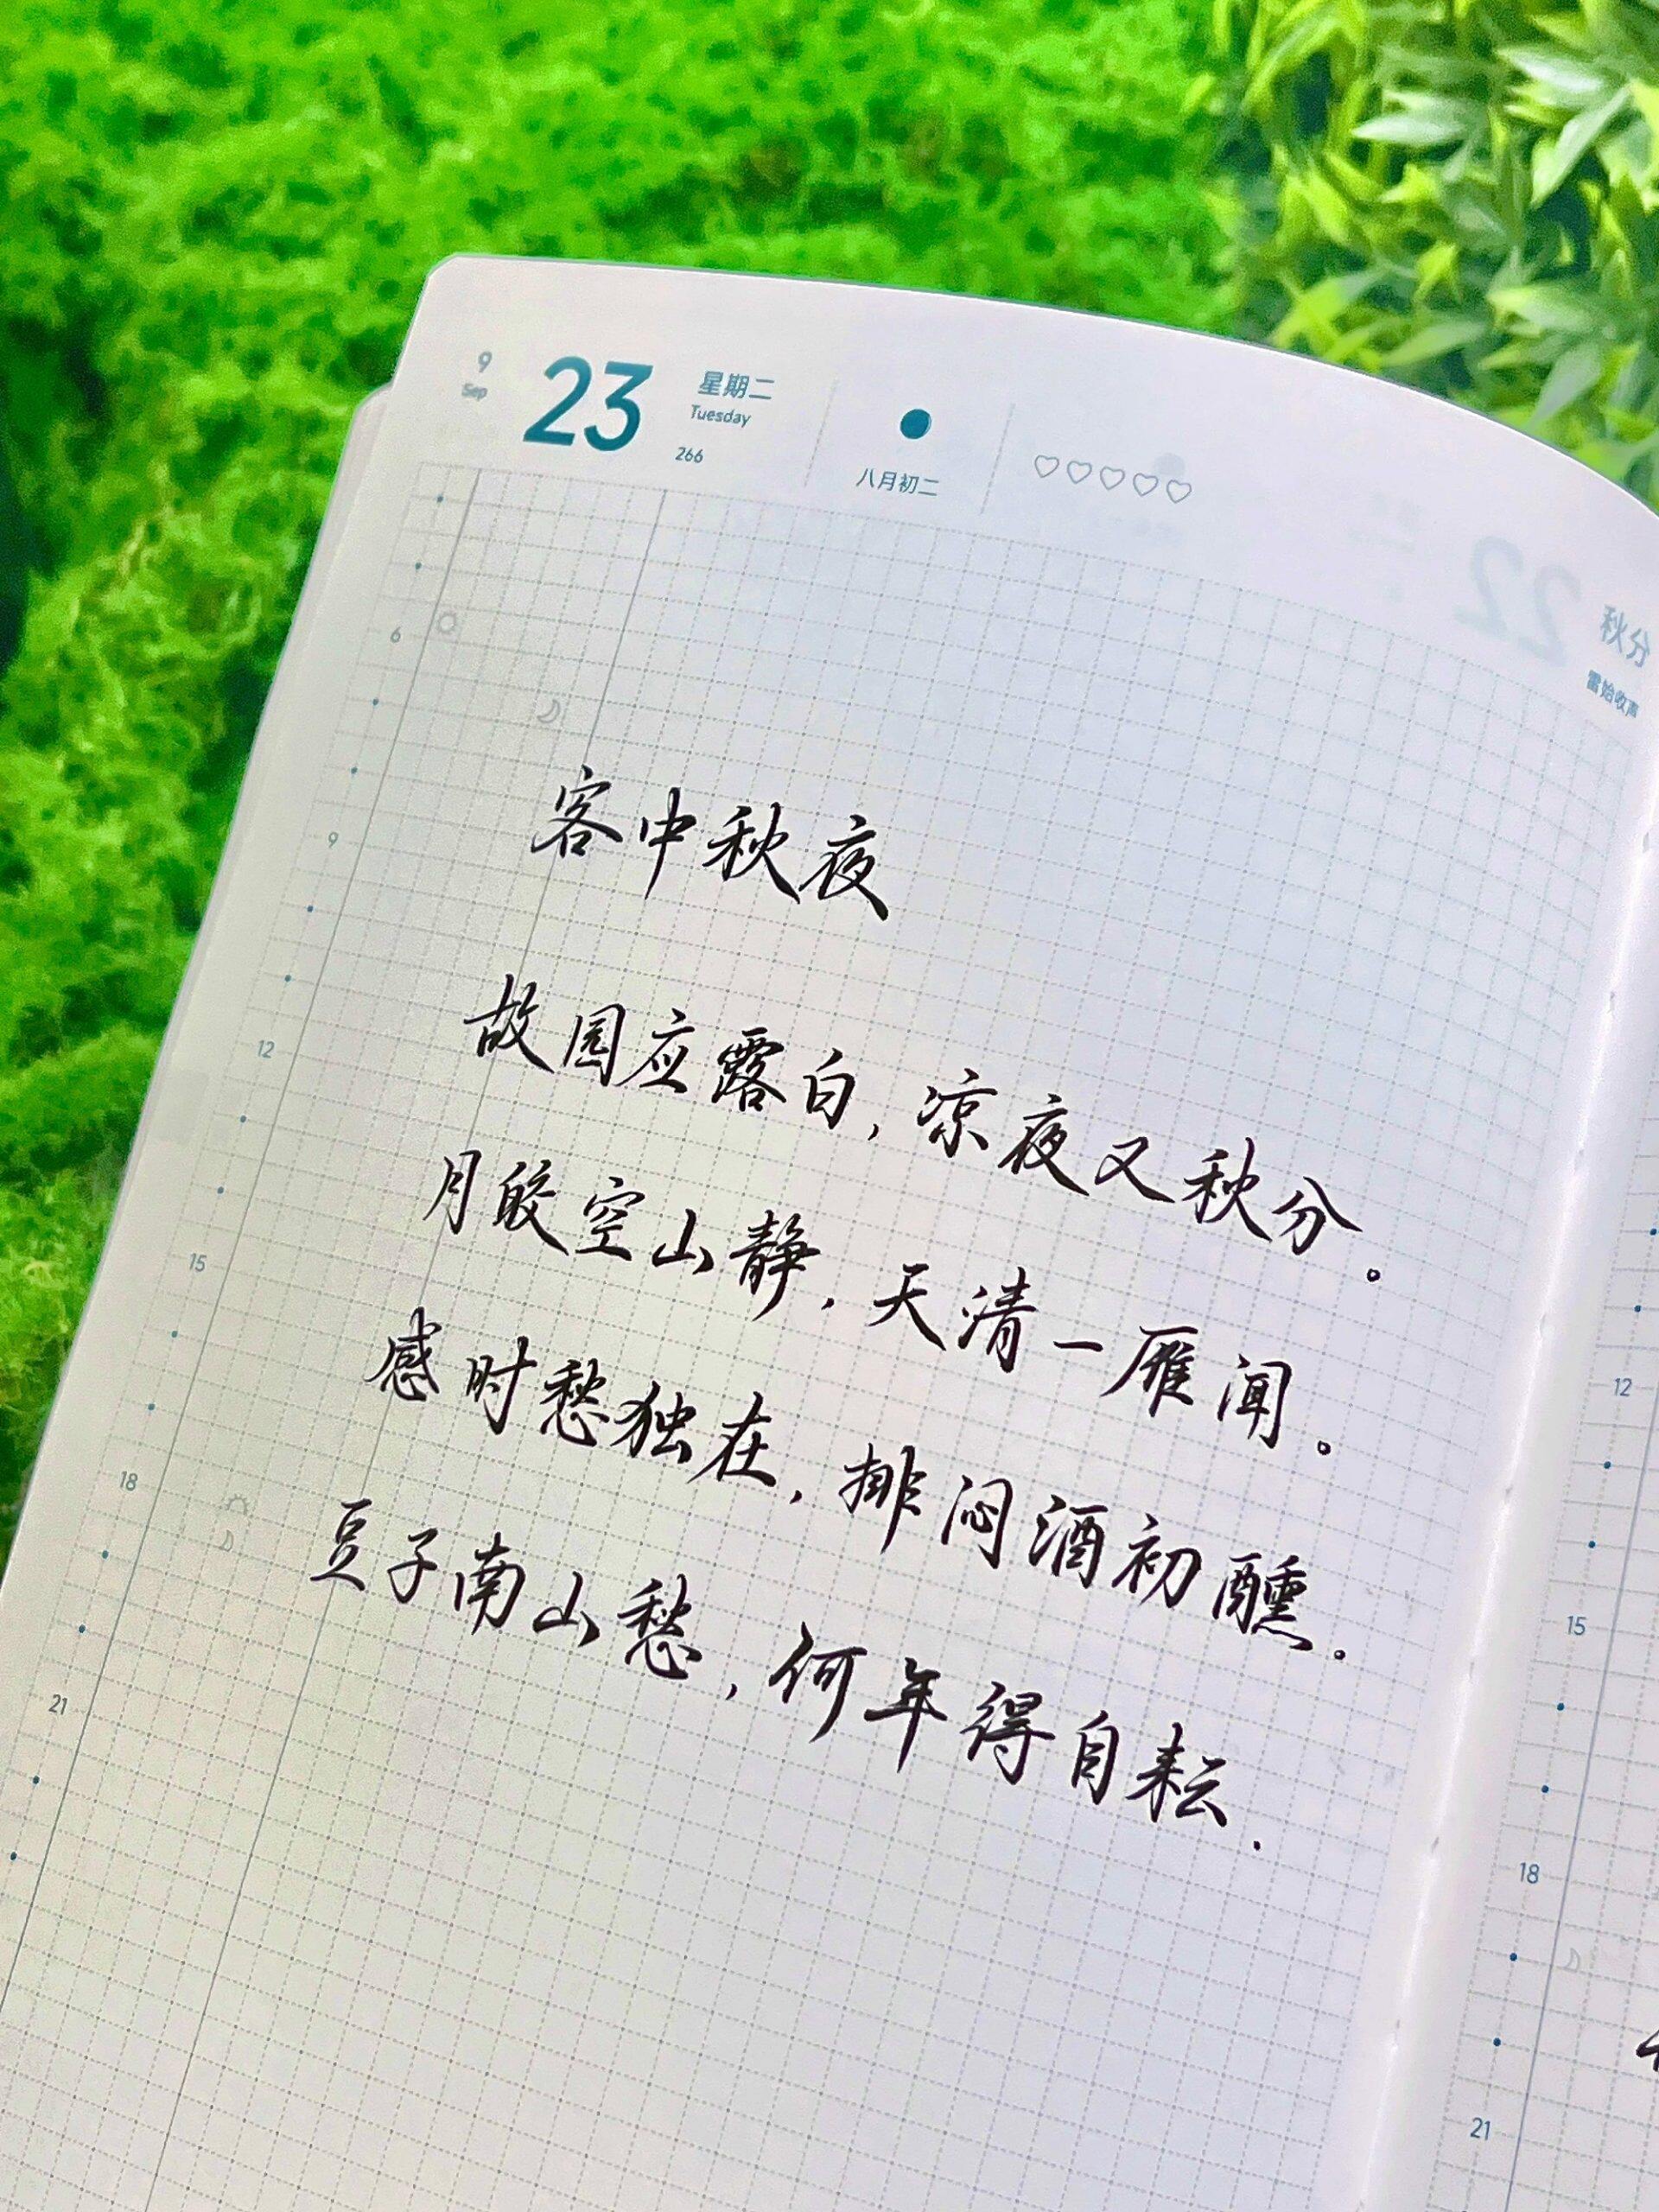 9
Sep
23
星期二
Tuesday
266
八月初二
22
秋分
雷始收声
6
9
12
15
18
21
客中秋夜
故园应露白,凉夜又秋分。
月皎空山静,天清一雁闻。
感时愁独在,排闷酒初醺.
豆子南山愁,何年得自耘.
12
15
18
21